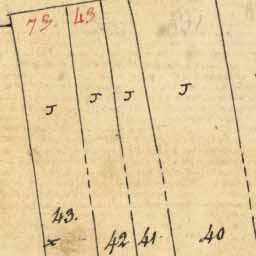 73. 43
J J J J
43. 42 41. 40